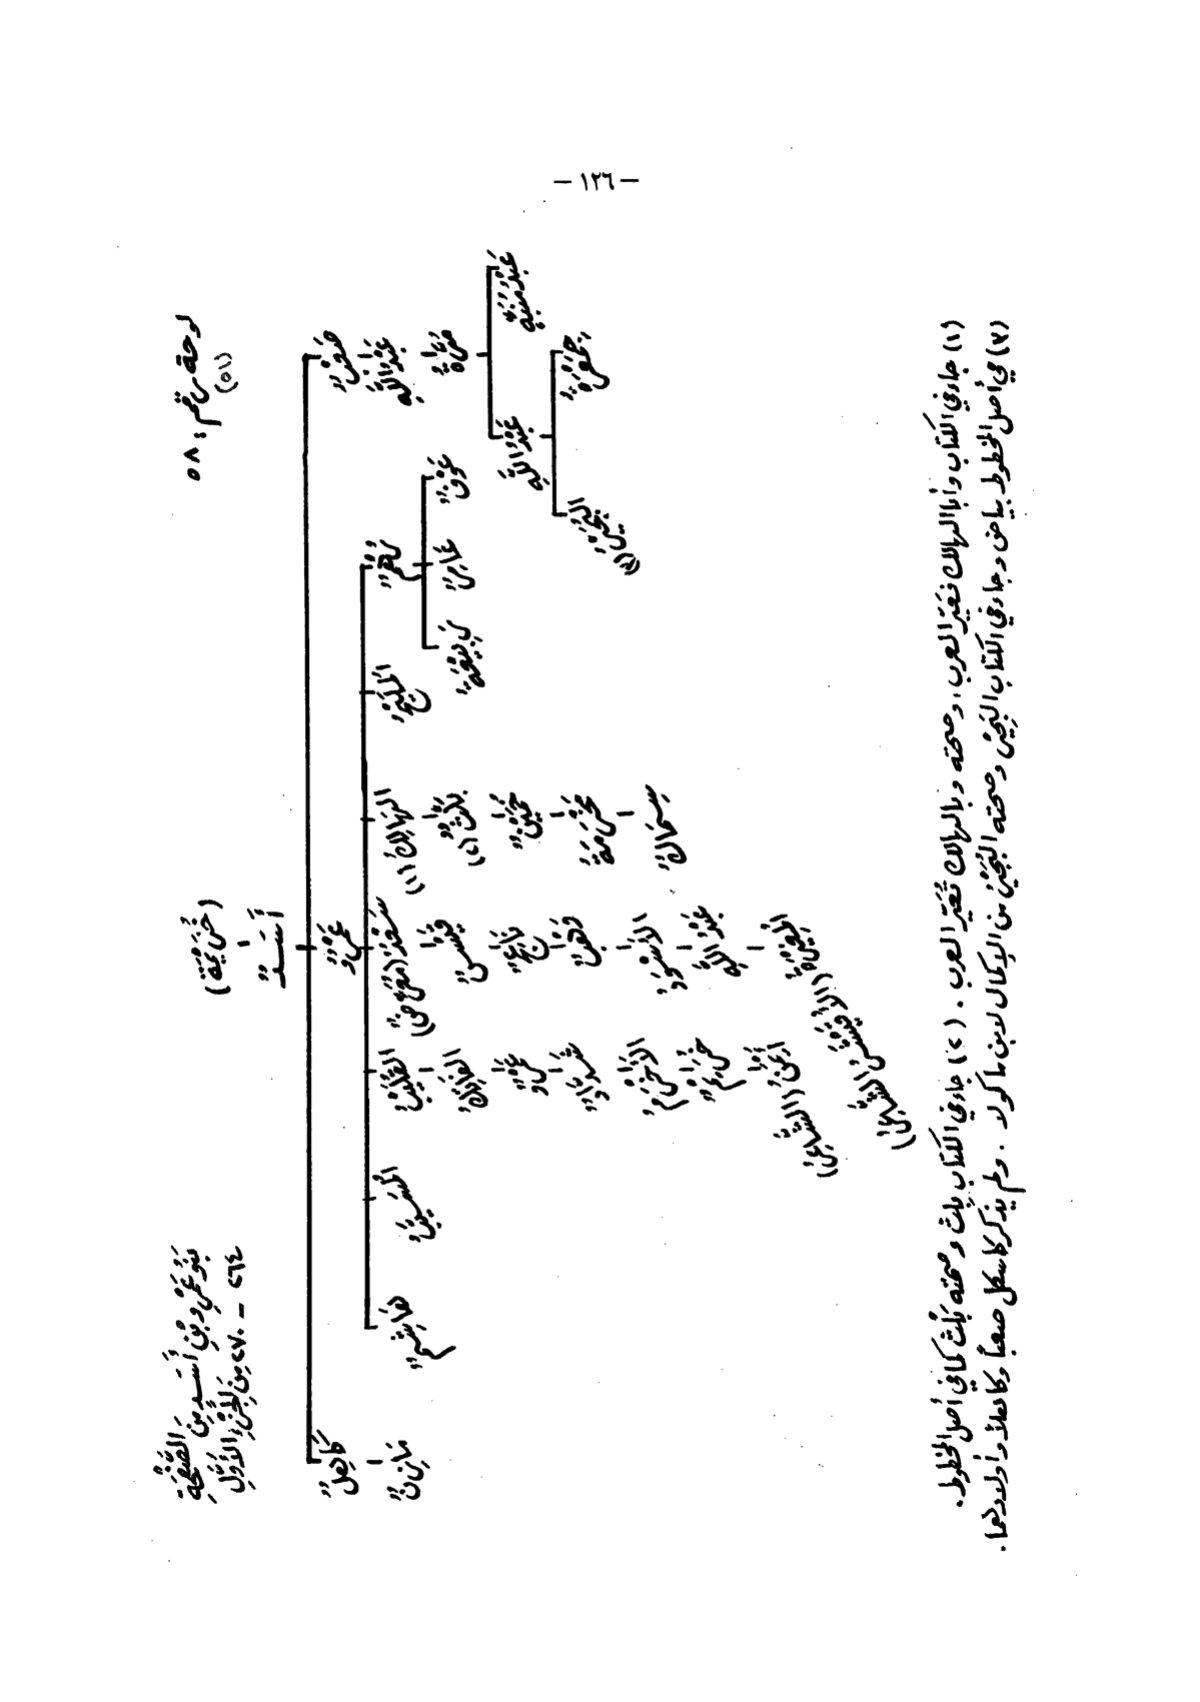 - ١٢٦ -
لوحة رقم : ٥٨
(٥١)
بَنُو عَمْرِو بْنِ أَسَدٍ مِنَ الصَّفْحَةِ
٢٦٤ - ٢٧٠ مِنَ الجُزْءِ الأَوَّلِ
(خُزَيْمَة)
أَسَدٌ
صَعْبٌ
عَبْدُ اللَّهِ
عَبْدُ مُنَبِّهٍ
عَبْدُ اللَّهِ
عَمْرٌو
عَوْفٌ
عَامِرٌ
رَبِيعَةُ
الهَالِكُ (١)
بَلْثٌ (٢)
مَخْرَمَةُ
سِمَاكٌ
سَعْدٌ (مُعْرِضٌ)
قَيْسٌ
الأَسْوَدُ
عَبْدُ اللَّهِ
المُغِيرَةُ (الأُقَيْشِرُ الشَّاعِرُ)
القُلَيْبُ
الفَاتِكُ
عَمْرٌو
شَدَّادٌ
الأَخْرَمُ
خُرَيْمٌ
أَيْمَنُ (الشَّاعِرُ)
هَاشِمٌ
كَاهِلٌ
مَازِنٌ
(١) جاء في الكتاب وأبا الهالك فعَيَّر العرب، وصحته وبالهالك تُعَيَّر العرب . (٢) جاء في الكتاب بِلْث وصحته بَلْث كما في أصل المخطوط.
(٣) في أصل المخطوط بياض وجاء في الكتاب وصحته من الإكمال لابن ماكولا . ولم يذكر كاسكل صعباً وكاهلاً وأولادهما.